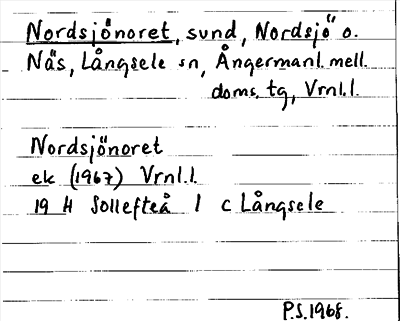 Nordsjönoret, sund, Nordsjö o.
Näs, Långsele sn, Ångermanl. mell.
doms. tg, Vrnl.l.
Nordsjönoret
ek (1967) Vrnl.l.
19 H Sollefteå l c Långsele
P.S. 1968.